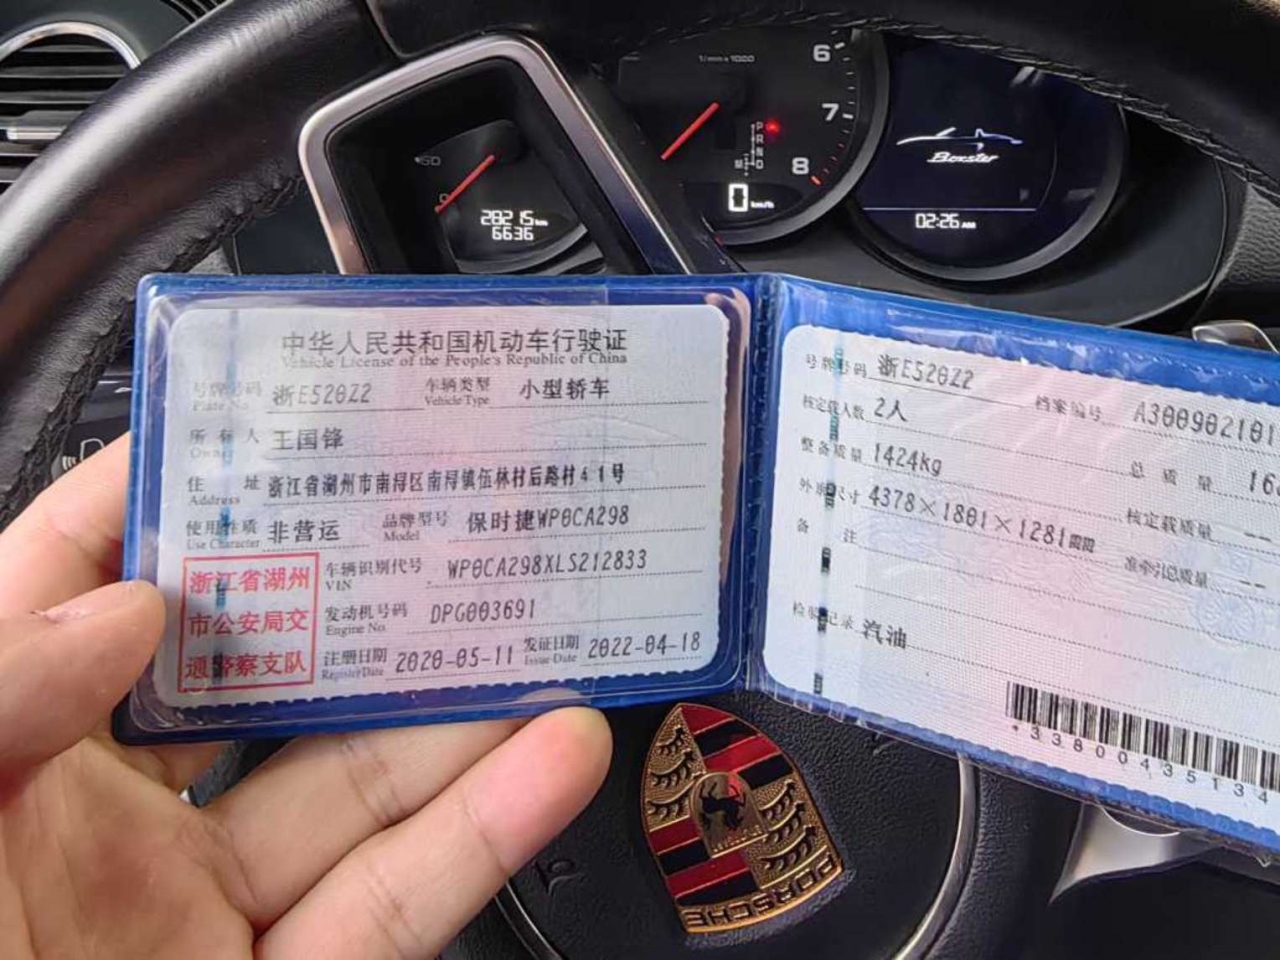 6
1/min x 1000
7
8
P
R
N
D
M
0 km/h
28215 km
6636
Boxster
02:26 AM
中华人民共和国机动车行驶证
Vehicle License of the People's Republic of China
号牌号码 浙E520Z2 车辆类型 小型轿车
Plate No. Vehicle Type
所有人 王国锋
Owner
住址 浙江省湖州市南浔区南浔镇伍林村后路村41号
Address
使用性质 非营运 品牌型号 保时捷WP0CA298
Use Character Model
浙江省湖州
市公安局交
通警察支队
车辆识别代号 WP0CA298XLS212833
VIN
发动机号码 DPG003691
Engine No.
注册日期 2020-05-11 发证日期 2022-04-18
Register Date Issue Date
号牌号码 浙E520Z2 档案编号 A300902101
核定载人数 2人 总质量 16
整备质量 1424kg 核定载质量 --
外廓尺寸 4378×1801×1281mm 准牵引总质量 --
备注
检验记录 汽油
*33800435134
PORSCHE